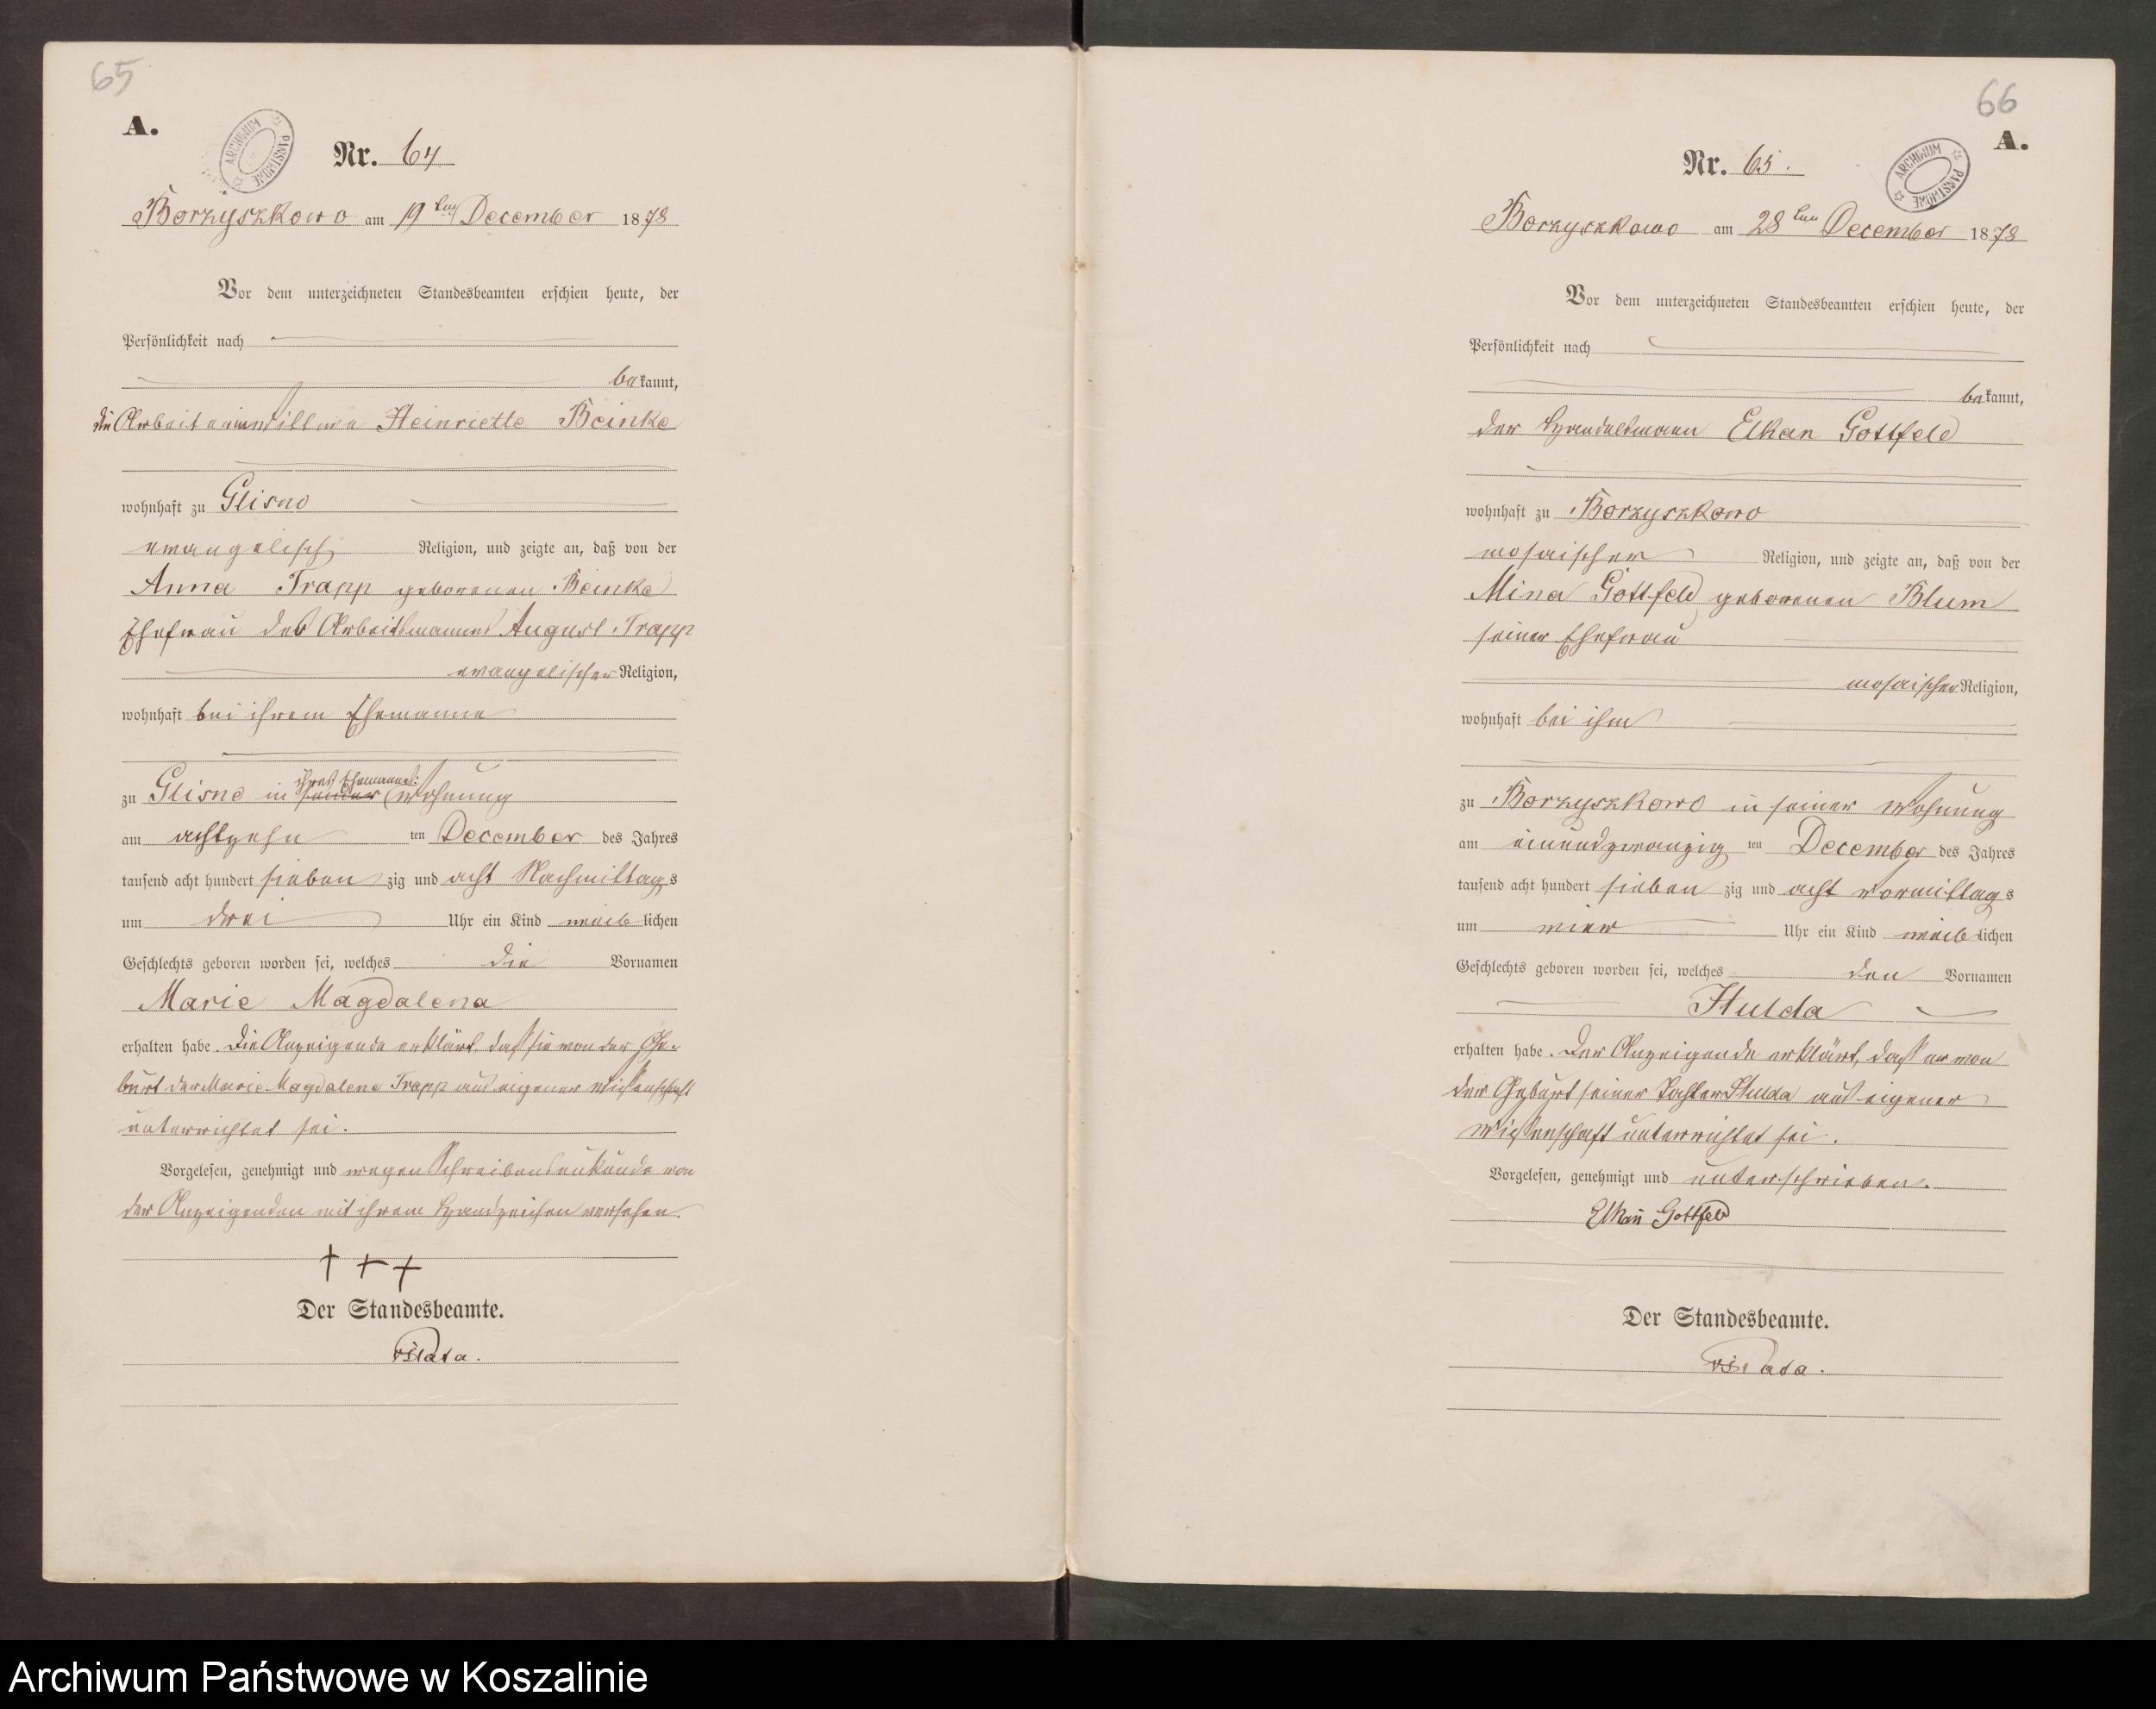 65
A.
ARCHIWUM PAŃSTWOWE
Nr. 64
Borzyszkowo am 19ten December 1878
Vor dem unterzeichneten Standesbeamten erschien heute, der
Persönlichkeit nach
bekannt,
die Arbeiterinwittwe Heinriette Beinke
wohnhaft zu Glisno
evangelisch Religion, und zeigte an, daß von der
Anna Trapp geborenen Beinke
Ehefrau des Arbeitsmannes August Trapp
evangelischer Religion,
wohnhaft bei ihrem Ehemanne
ihres Ehemannes
zu Glisno in seiner Wohnung
am achtzehn ten December des Jahres
tausend acht hundert sieben zig und acht Nachmittags
um drei Uhr ein Kind weiblichen
Geschlechts geboren worden sei, welches die Vornamen
Marie Magdalena
erhalten habe. Die Anzeigende erklärt, daß sie von der Ge-
burt der Marie Magdalena Trapp aus eigener Wissenschaft
unterrichtet sei.
Vorgelesen, genehmigt und wegen Schreibensunkunde von
der Anzeigenden mit ihrem Handzeichen versehen.
+++
Der Standesbeamte.
66
A.
ARCHIWUM PAŃSTWOWE
Nr. 65.
Borzyszkowo am 28ten December 1878
Vor dem unterzeichneten Standesbeamten erschien heute, der
Persönlichkeit nach
bekannt,
der Handelsmann Elkan Gottfeld
wohnhaft zu Borzyszkowo
mosaischer Religion, und zeigte an, daß von der
Mina Gottfeld geborenen Blum
seiner Ehefrau
mosaischer Religion,
wohnhaft bei ihm
zu Borzyszkowo in seiner Wohnung
am einundzwanzig ten December des Jahres
tausend acht hundert sieben zig und acht Vormittags
um vier Uhr ein Kind weiblichen
Geschlechts geboren worden sei, welches den Vornamen
Hulda
erhalten habe. Der Anzeigende erklärt, daß er von
der Geburt seiner Tochter Hulda aus eigener
Wissenschaft unterrichtet sei.
Vorgelesen, genehmigt und unterschrieben.
Elkan Gottfeld
Der Standesbeamte.
Archiwum Państwowe w Koszalinie